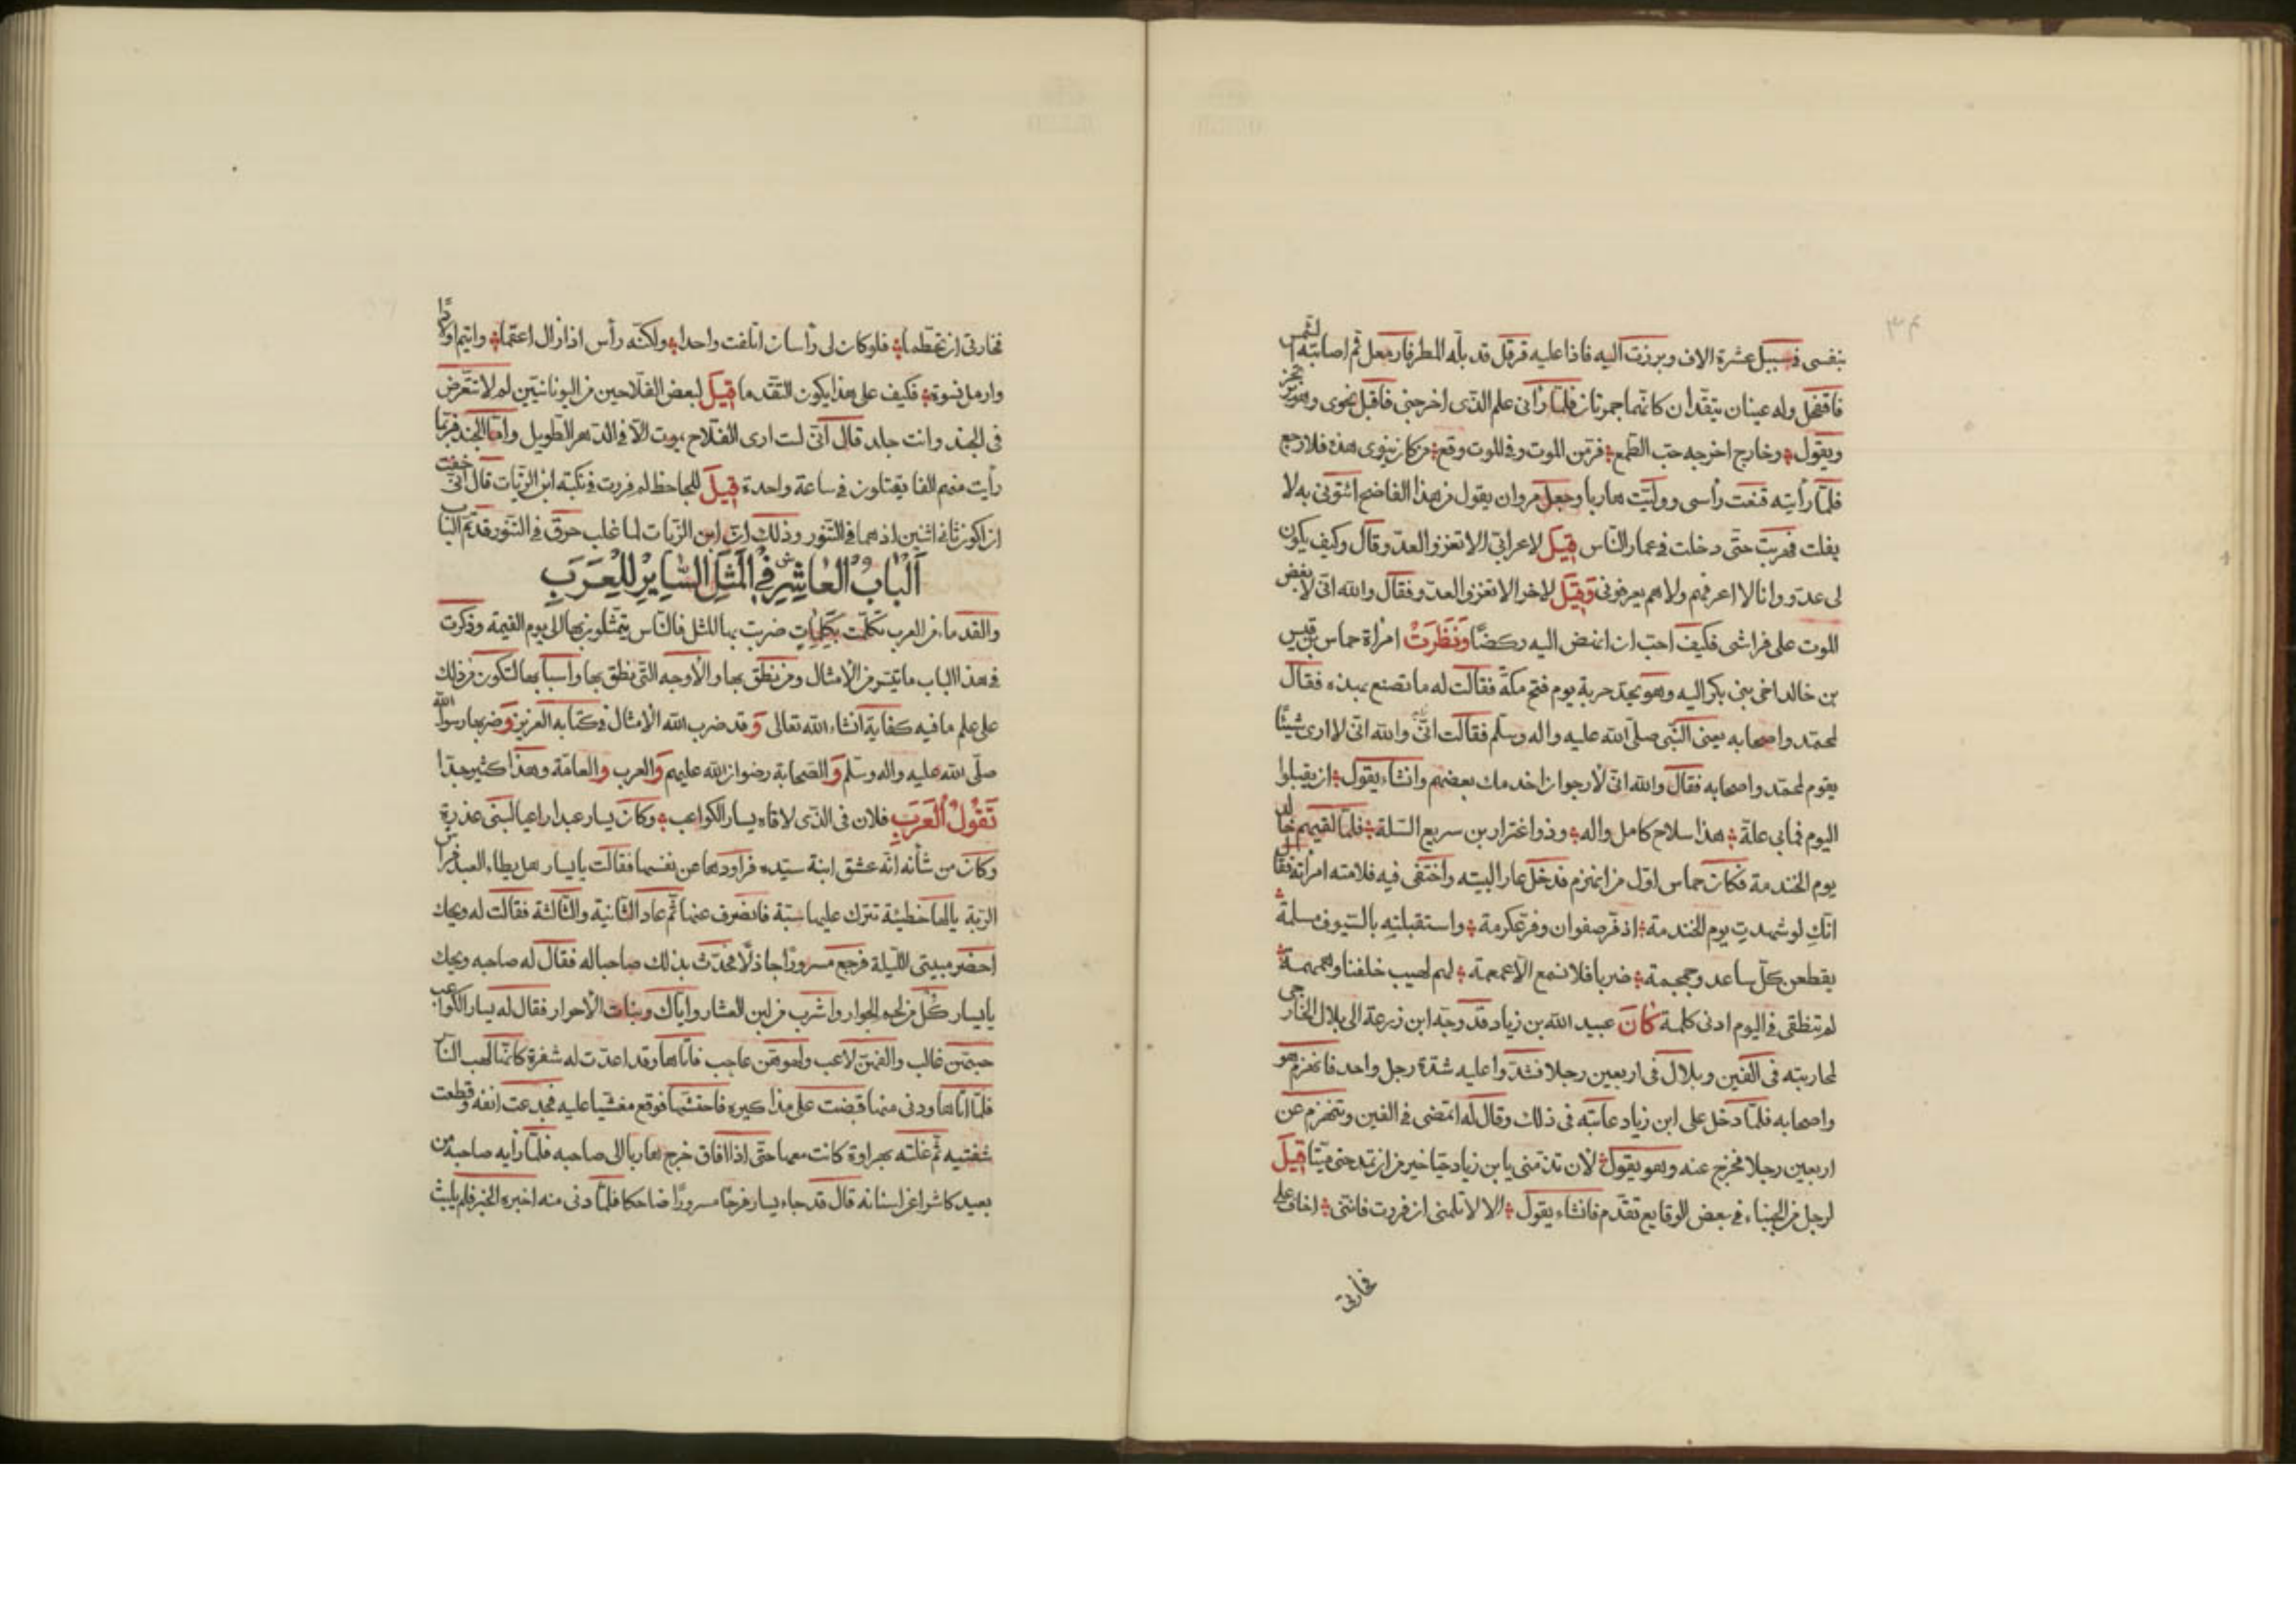 بنفسى فى سبيل عشرة الاف وبرزت اليه فاذا عليه قرقل قد بله المطر فارمعل ثم اصابته الشمس
فاقفعل وله عينان يتقدان كانهما جمرتان فلما رأنى علم الذى اخرجنى فاقبل نحوى وهو يرتجز
ويقول وخارج اخرجه حب الطمع فر من الموت وفى الموت وقع من كان ينوى هذه فلا رجع
فلما رأيته قنعت رأسى ووليت هاربا وجعل مروان يقول من هذا الفاضح ائتونى به لا
يفلت فهربت حتى دخلت فى غمار الناس قيل لاعرابى الا تغزو العدو قال وكيف يكون
لى عدو وانا لا اعرفهم ولا هم يعرفونى وقيل لاخر الا تغزو العدو فقال والله انى لابغض
الموت على فراشى فكيف احب ان انهض اليه ركضا ونظرت امرأة حماس بن قيس
بن خالد اخى بنى بكر اليه وهو يحد حربة يوم فتح مكة فقالت له ما تصنع بهذه فقال
لمحمد واصحابه يعنى النبى صلى الله عليه واله وسلم فقالت انى والله انى لا ارى شيئا
يقوم لمحمد واصحابه فقال والله انى لارجو ان اخدمك بعضهم وانشاء يقول ان يقبلوا
اليوم فمابى علة هذا سلاح كامل واله وذو اغترار بن سريع السلة فلما لقيهم خالد
يوم الخندمة فكان حماس اول من انهزم فدخل عار البيته واختفى فيه فلامته امرأته فقال
انك لو شهدت يوم الخندمة اذ فر صفوان وفر عكرمة واستقبلته بالسيوف مسلمة
يقطعن كل ساعد وجمجمة ضربا فلا تسمع الا غمغمة لهم لهيب خلفنا وهمهمة
لم تنطقى فى اليوم ادنى كلمة كان عبيد الله بن زياد قد وجه ابن زرعة الى بلال الخارجى
لمحاربته فى الفين وبلال فى اربعين رجلا فشدوا عليه شدة رجل واحد فانهزم هو
واصحابه فلما دخل على ابن زياد عاتبه فى ذلك وقال له اتمضى فى الفين وتنهزم عن
اربعين رجلا فخرج عنه وهو يقول لأن تذمنى يا بن زياد حيا خير من ان تمدحنى ميتا قيل
لرجل من الجبناء فى بعض الوقايع تقدم فانشاء يقول الا لا تلمنى ان فررت فاننى اخاف على
فخارتى
فخارتى ان تحطما فلو كان لى رأسان اتلفت واحدا ولكنه رأس اذا زال اعتما وايتم اولادا
وارمل نسوة فكيف على هذا يكون التقدما قيل لبعض الفلاحين من اليونانيين لم لا تتعرض
فى الجند وانت جلد قال انى لست ارى الفلاح يموت الا فى الدهر الطويل واما الجند فربما
رأيت منهم الفا يقتلون فى ساعة واحدة قيل للجاحظ لم فررت فى نكبة ابن الزيات قال انى خفت
ان اكون ثانى اثنين اذ هما فى التنور وذلك ان ابن الزيات لما غلب حرق فى التنور قد تم الباب
الباب العاشر فى المثل الساير للعرب
والقدماء من العرب تكلمت بكلمات ضربت بها المثل فالناس يتمثلون بها الى يوم القيمة وذكرت
فى هذا الباب ما تيسر من الامثال ومن نطق بها والاوجه التى نطق بها واسبابها لتكون من ذلك
على علم ما فيه كفاية انشاء الله تعالى وقد ضرب الله الامثال فى كتابه العزيز وضربها رسول الله
صلى الله عليه واله وسلم والصحابة رضوان الله عليهم والعرب والعامة وهذا كثير جدا
تقول العرب فلان فى الذى لاقاه يسار الكواعب وكان يسار عبدا راعيا لبنى عذرة
وكان من شأنه انه عشق ابنة سيده فراودها عن نفسها فقالت يا يسار هل يطاء العبد فراش
الربة يالها خطيئة تترك عليها سبة فانصرف عنها ثم عاد الثانية والثالثة فقالت له ويحك
احضر مبيتى الليلة فرجع مسرورا جاذلا فحدث بذلك صاحبا له فقال له صاحبه ويحك
يا يسار كل من لحم الحوار واشرب من لبن العشار واياك وبنات الاحرار فقال له يسار الكواعب
حبهن غالب والفهن لاعب ولهوهن عاجب فاتاها وقد اعدت له شفرة كانها لهب النار
فلما اتاها ودنى منها قبضت على مذاكيره فاحتشها فوقع مغشيا عليه فجدعت انفه وقطعت
شفتيه ثم علته بهراوة كانت معها حتى اذا افاق خرج هاربا الى صاحبه فلما رأيه صاحبه من
بعيد كاشرا عن اسنانه قال قد جاء يسار فرحا مسرورا ضاحكا فلما دنى منه اخبره الخبر فلم يلبث